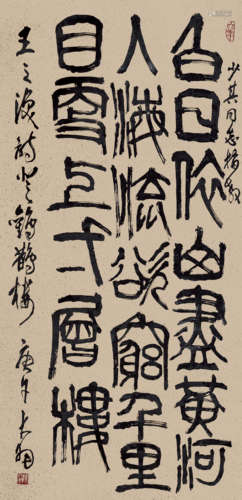 少其同志指教
白日依山盡黄河
入海流欲窮千里
目更上一層樓
王之渙詩登鸛鵲樓 庚午大羽